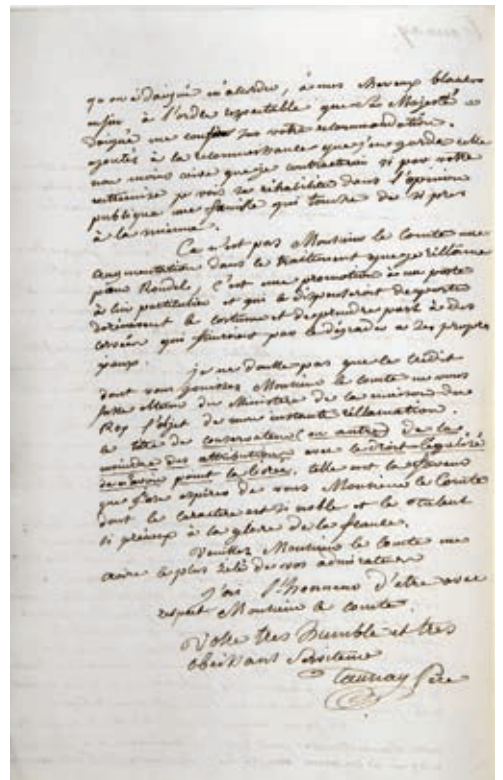 qu'on a daigné m'accorder, à mes cheveux blancs
enfin à l'ordre respectable que sa Majesté a
daigné me confier sur votre recommandation.
ajoutés à la reconnaissance que j'en garde celle
non moins vive que je contracterai si par votre
entremise je vois se réhabiliter dans l'opinion
publique une famille qui touche de si près
à la mienne.
Ce n'est pas Monsieur le comte une
augmentation dans le traitement que je réclame
pour Rondel, c'est une promotion à une poste
à lui particulier et qui le dispenserait de porter
dorénavant le costume et de prendre part à des
corvées qui finiront par le dégrader à ses propres
yeux.
je ne doute pas que le crédit
dont vous jouissez Monsieur le comte
Ministère de la maison du
Roy l'objet de mon instante réclamation.
le titre de conservateur (ou autre) de la
moindre des attributions avec le droit
de point la livrée. telle est la faveur
que j'ose espérer de vous Monsieur le Comte
dont le caractère est si noble et le talent
si précieux à la gloire de la france.
Veuillez Monsieur le comte me
croire le plus zélé de vos admirateurs
J'ai l'honneur d'être avec
respect Monsieur le comte.
Votre tres humble et tres
obeissant Serviteur
Taunay Père